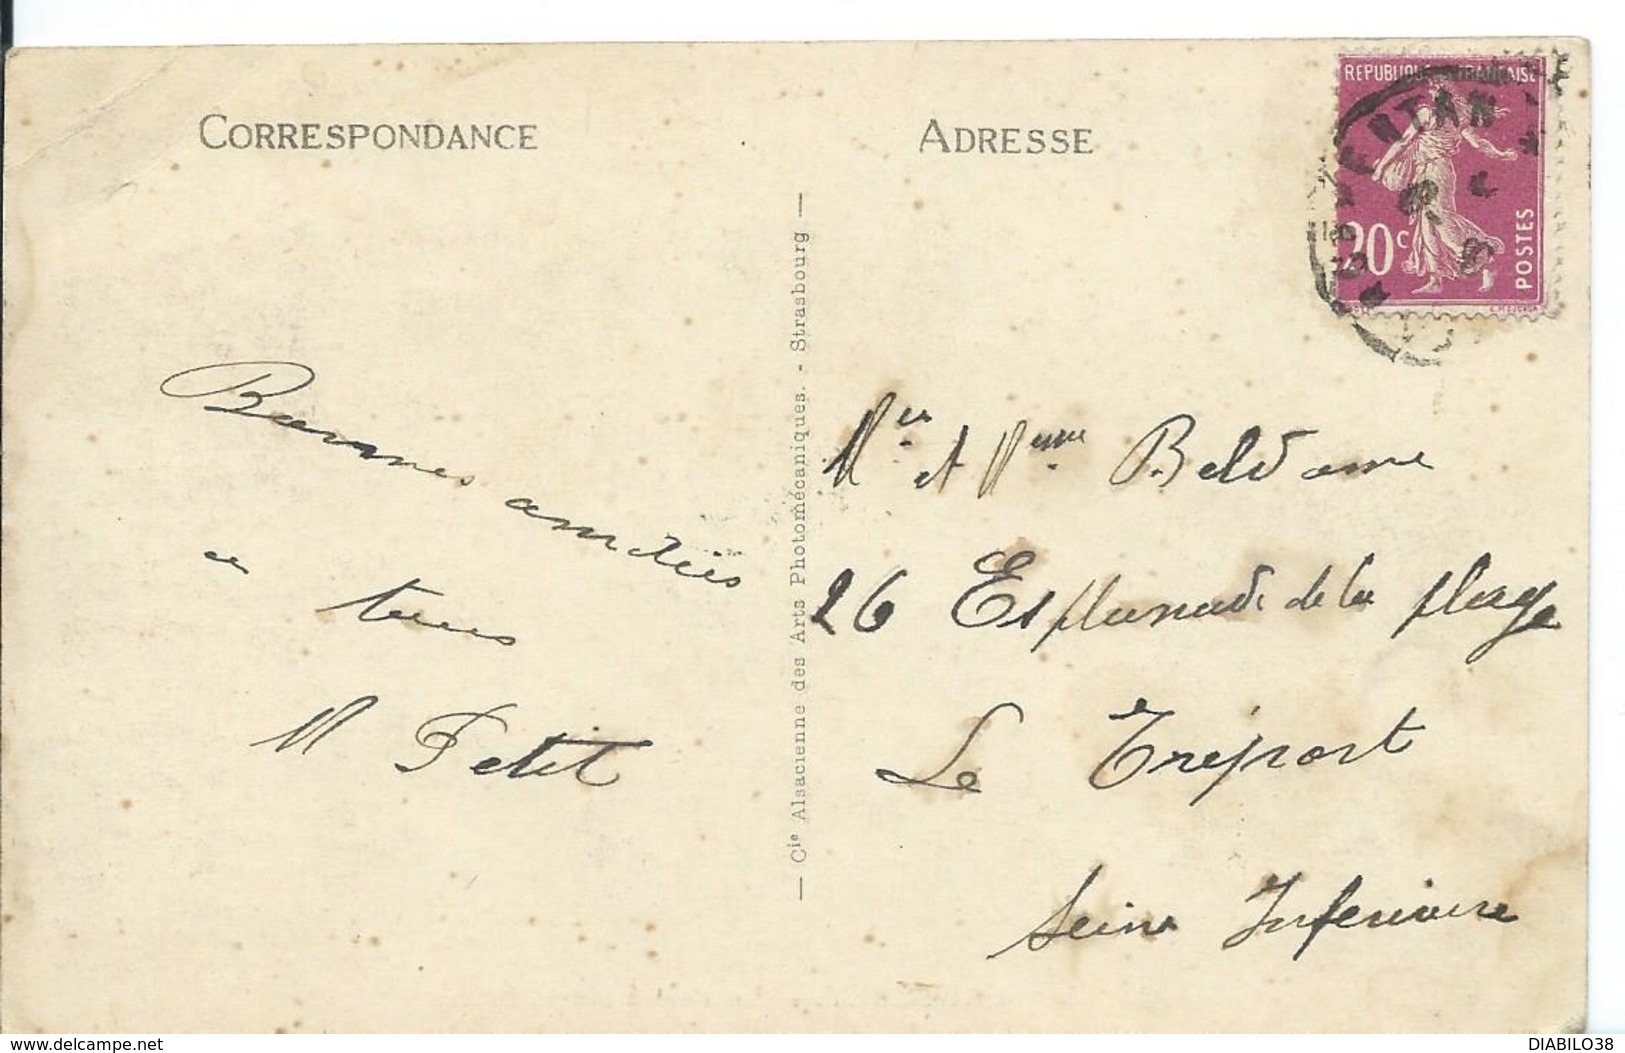 CORRESPONDANCE
ADRESSE
REPUBLIQUE FRANÇAISE
20c
POSTES
Bonnes amitiés
a tous
M Petit
— Cie Alsacienne des Arts Photomécaniques. - Strasbourg —
Mer et Mme Beldame
26 Esplanade de la plage
Le Tréport
Seine Inferieure
www.delcampe.net
DIABILO38